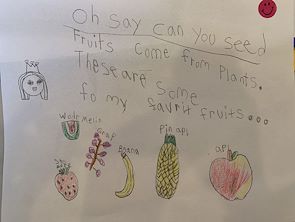 Oh say can you seed
Fruits come from Plants.
These are some
fo my favrit fruits...
Grap
Banana
Pin apl
apl